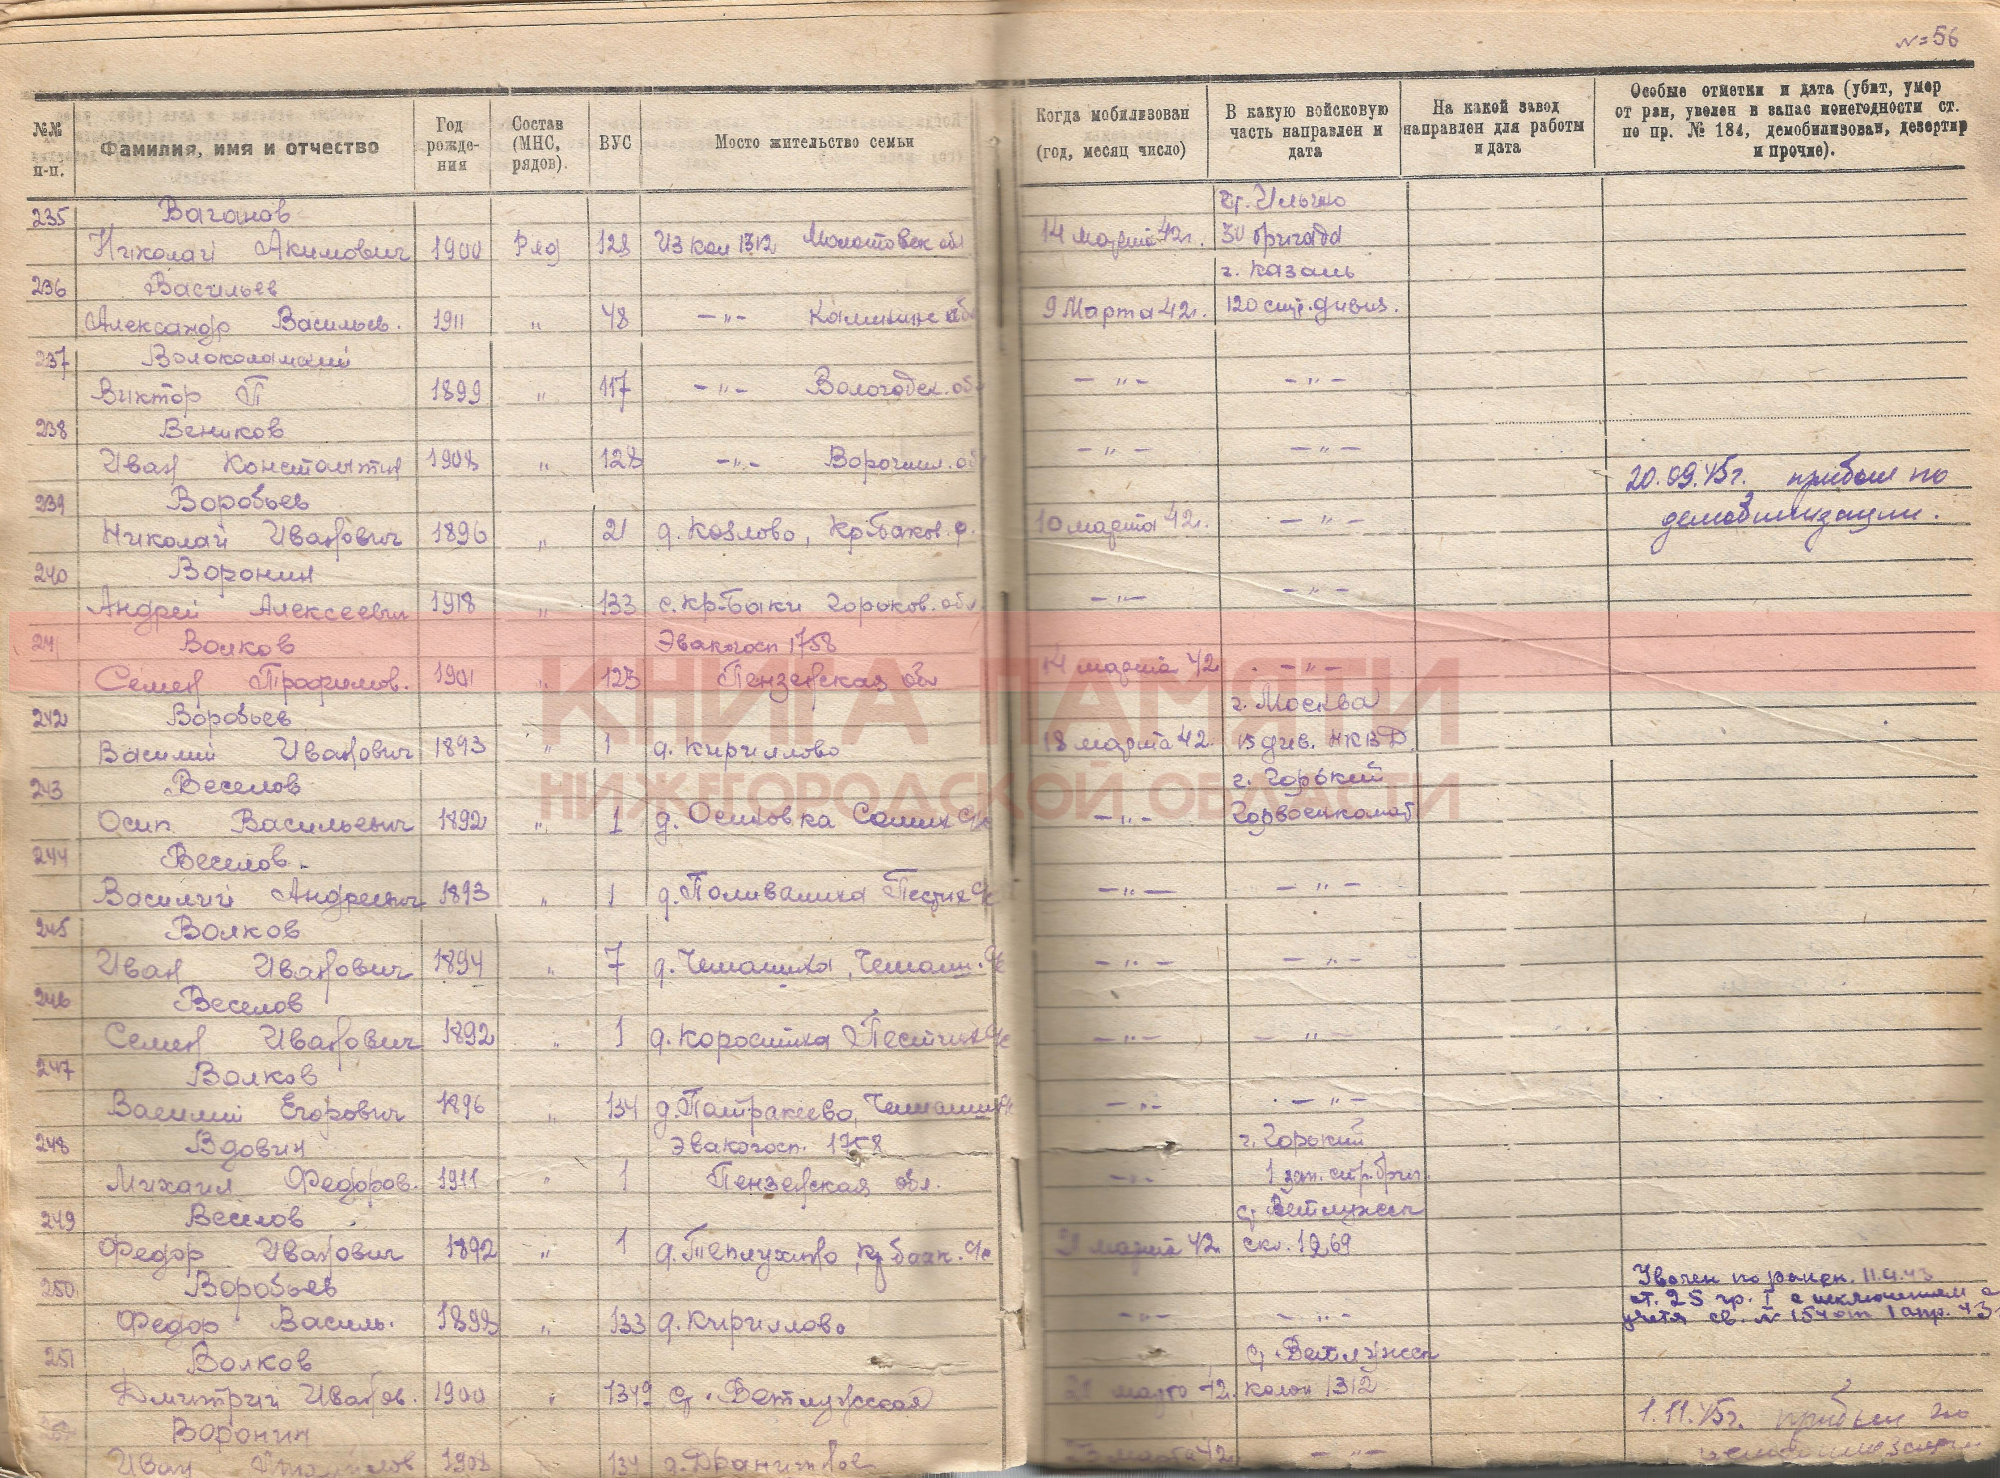 № 56
№№ п-п.
Фамилия, имя и отчество
Год рожде-ния
Состав (МНС, рядов).
ВУС
Место жительство семьи
Когда мобилизован (год, месяц число)
В какую войсковую часть направлен и дата
На какой завод направлен для работы и дата
Особые отметки и дата (убит, умер от ран, уволен в запас понегодности ст. по пр. № 184, демобилизован, дезертир и прочие).
235 Ваганов
Николай Акимович 1900 Ряд 128 Из кол 1312 Молотовск обл 14 марта 42г. 30 бригада
236 Васильев г. Казань
Александр Васильев. 1911 " 48 —"— Калинин обл 9 Марта 42г. 120 стр. дивиз.
237
Виктор П 1899 " 117 —"— Вологодск. обл —"— —"—
238 Веников
Иван Константин 1908 " 128 —"— —"— —"—
239 Воробьев 20.09.45г. прибыл по
Николай Иванович 1896 " 21 д. Козлово, Кр-баков. р. 10 марта 42г. —"— демобилизации.
240 Воронин
Андрей Алексеевич 1918 " 133 с. Кр-Баки Горьков. обл —"— —"—
241 Волков Эвакогосп 1758
Семен Трофимов. 1901 " 123 Пензенская обл 14 марта 42 —"—
242 Воробьев г. Москва
Василий Иванович 1893 " 1 д. Кириллово 18 марта 42. 15 див. НКВД.
243 Веселов г. Горький
Осип Васильевич 1892 " 1 д. Осиновка —"— Горвоенкомат
244 Веселов.
Василий Андреевич 1893 " 1 —"— —"—
245 Волков
Иван Иванович 1894 " 7 д. Чемашиха, —"— —"—
246 Веселов
Семен Иванович 1892 " 1 —"— —"—
247 Волков
Василий Егорович 1896 " 134 д. Патракеево, —"— —"—
248 Вдовин Эвакогосп. 1758 г. Горький
Михаил Федоров. 1911 " 1 Пензенская обл. —"— 1 зап. стр. бриг.
249 Веселов
Федор Иванович 1892 " 1 21 марта 42г. скл. 1269
250 Воробьев Уволен по ранен.
Федор Василь. 1898 " 133 д. Кириллово —"— —"— ст. 25 гр. I с исключением с учета св. № 154 от 1 апр. 43
251 Волков
Дмитрий Иванов. 1900 " 1349 ст. Ветлужская 42. колон 1312
Воронин 1.11.45г. прибыл по
Иван 1908 134 марта 42 —"— демобилизации
КНИГА ПАМЯТИ
НИЖЕГОРОДСКОЙ ОБЛАСТИ